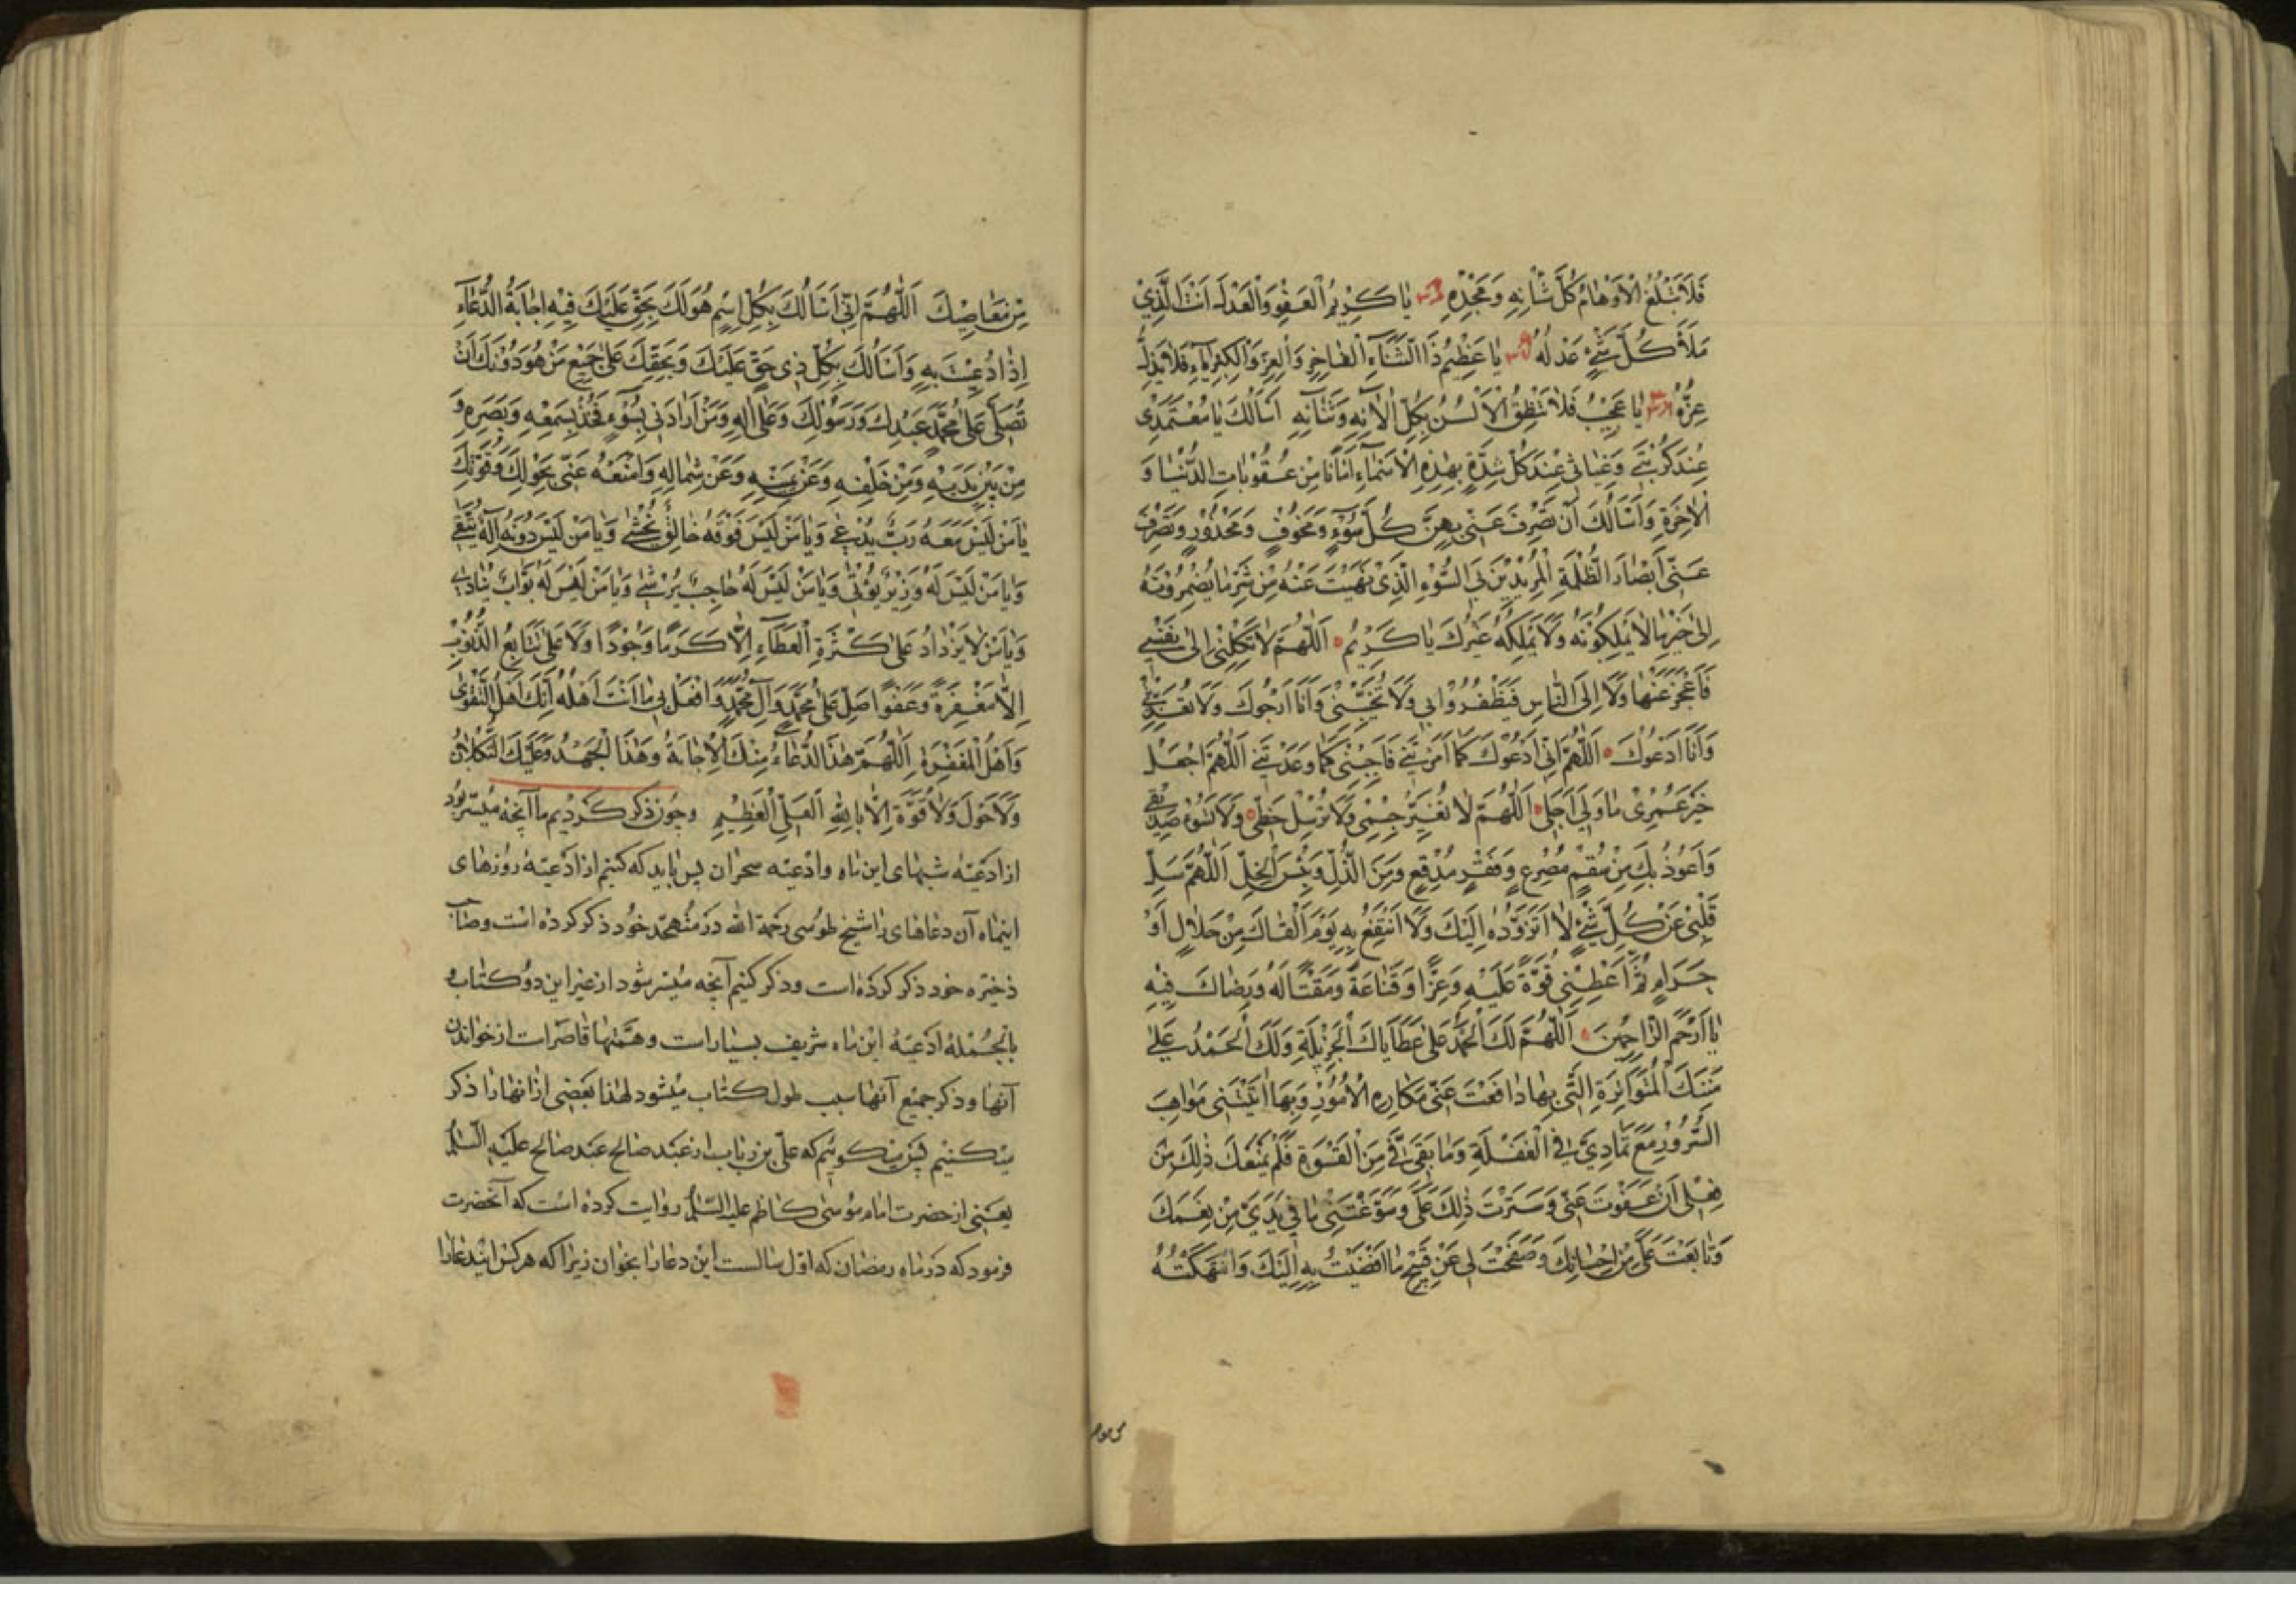 فَلَا تَبْلُغُ الْأَوْهَامُ كُلَّ شَأْنِهِ وَمَجْدِهِ يَا كَرِيمُ الْعَفْوِ وَالْعَدْلِ أَنْتَ الَّذِي
مَلَأَ كُلَّ شَيْءٍ عَدْلُهُ يَا عَظِيمُ ذَا الثَّنَاءِ الْفَاخِرِ وَالْعِزِّ وَالْكِبْرِيَاءِ فَلَا يَذِلُّ
عِزُّهُ يَا عَجِيبُ فَلَا تَنْطِقُ الْأَلْسُنُ بِكُلِّ آلَائِهِ وَثَنَائِهِ أَسْأَلُكَ يَا مُعْتَمَدِي
عِنْدَ كُرْبَتِي وَغِيَاثِي عِنْدَ كُلِّ شِدَّةٍ بِهٰذِهِ الْأَسْمَاءِ أَمَانًا مِنْ عُقُوبَاتِ الدُّنْيَا وَ
الْآخِرَةِ وَأَسْأَلُكَ أَنْ تَصْرِفَ عَنِّي بِهِنَّ كُلَّ سُوءٍ وَمَخُوفٍ وَمَحْذُورٍ وَتَصْرِفَ
عَنِّي أَبْصَارَ الظَّلَمَةِ الْمُرِيدِينَ بِيَ السُّوءَ الَّذِي نَهَيْتَ عَنْهُ مِنْ شَرِّ مَا يُضْمِرُونَهُ
إِلَى خَيْرِ مَا لَا يَمْلِكُونَهُ وَلَا يَمْلِكُهُ غَيْرُكَ يَا كَرِيمُ اَللّٰهُمَّ لَا تَكِلْنِي إِلَى نَفْسِي
فَأَعْجِزَ عَنْهَا وَلَا إِلَى النَّاسِ فَيَظْفَرُوا بِي وَلَا تُخَيِّبْنِي وَأَنَا أَرْجُوكَ وَلَا تُعَذِّبْنِي
وَأَنَا أَدْعُوكَ اَللّٰهُمَّ إِنِّي أَدْعُوكَ كَمَا أَمَرْتَنِي فَأَجِبْنِي كَمَا وَعَدْتَنِي اَللّٰهُمَّ اجْعَلْ
خَيْرَ عُمْرِي مَا وَلِيَ أَجَلِي اَللّٰهُمَّ لَا تُغَيِّرْ جِسْمِي وَلَا تُرْسِلْ حَظِّي وَلَا تَسُؤْ صَدِيقِي
وَأَعُوذُ بِكَ مِنْ سُقْمٍ مُصْرِعٍ وَفَقْرٍ مُدْقِعٍ وَمِنَ الذُّلِّ وَبِئْسَ الْخِلِّ اَللّٰهُمَّ سَلِّ
قَلْبِي عَنْ كُلِّ شَيْءٍ لَا أَتَزَوَّدُهُ إِلَيْكَ وَلَا أَنْتَفِعُ بِهِ يَوْمَ أَلْقَاكَ مِنْ حَلَالٍ أَوْ
حَرَامٍ ثُمَّ أَعْطِنِي قُوَّةً عَلَيْهِ وَعِزًّا وَقَنَاعَةً وَمَقْتًا لَهُ وَرِضَاكَ فِيهِ
يَا أَرْحَمَ الرَّاحِمِينَ اَللّٰهُمَّ لَكَ الْحَمْدُ عَلَى عَطَايَاكَ الْجَزِيلَةِ وَلَكَ الْحَمْدُ عَلَى
مِنَنِكَ الْمُتَوَاتِرَةِ الَّتِي بِهَا دَافَعْتَ عَنِّي مَكَارِهَ الْأُمُورِ وَبِهَا آتَيْتَنِي مَوَاهِبَ
السُّرُورِ مَعَ تَمَادِيَّ فِي الْغَفْلَةِ وَمَا بَقِيَ فِيَّ مِنَ الْقَسْوَةِ فَلَمْ يَمْنَعْكَ ذٰلِكَ مِنْ
فِعْلِي أَنْ عَفَوْتَ عَنِّي وَسَتَرْتَ ذٰلِكَ عَلَيَّ وَسَوَّغْتَنِي مَا فِي يَدَيَّ مِنْ نِعَمِكَ
وَتَابَعْتَ عَلَيَّ مِنْ إِحْسَانِكَ وَصَفَحْتَ لِي عَنْ قَبِيحِ مَا أَفْضَيْتُ بِهِ إِلَيْكَ وَانْتَهَكْتُهُ
مِنْ مَعَاصِيكَ اَللّٰهُمَّ إِنِّي أَسْأَلُكَ بِكُلِّ اسْمٍ هُوَ لَكَ بِحَقٍّ عَلَيْكَ فِيهِ إِجَابَةُ الدُّعَاءِ
إِذَا دُعِيتَ بِهِ وَأَسْأَلُكَ بِكُلِّ ذِي حَقٍّ عَلَيْكَ وَبِحَقِّكَ عَلَى جَمِيعِ مَنْ هُوَ دُونَكَ أَنْ
تُصَلِّيَ عَلَى مُحَمَّدٍ عَبْدِكَ وَرَسُولِكَ وَعَلَى آلِهِ وَمَنْ أَرَادَنِي بِسُوءٍ فَخُذْ بِسَمْعِهِ وَبَصَرِهِ وَ
مِنْ بَيْنِ يَدَيْهِ وَمِنْ خَلْفِهِ وَعَنْ يَمِينِهِ وَعَنْ شِمَالِهِ وَامْنَعْهُ عَنِّي بِحَوْلِكَ وَقُوَّتِكَ
يَا مَنْ لَيْسَ مَعَهُ رَبٌّ يُدْعَى وَيَا مَنْ لَيْسَ فَوْقَهُ خَالِقٌ يُخْشَى وَيَا مَنْ لَيْسَ دُونَهُ إِلٰهٌ يُتَّقَى
وَيَا مَنْ لَيْسَ لَهُ وَزِيرٌ يُؤْتَى وَيَا مَنْ لَيْسَ لَهُ حَاجِبٌ يُرْشَى وَيَا مَنْ لَيْسَ لَهُ بَوَّابٌ يُنَادَى
وَيَا مَنْ لَا يَزْدَادُ عَلَى كَثْرَةِ الْعَطَاءِ إِلَّا كَرَمًا وَجُودًا وَلَا عَلَى تَتَابُعِ الذُّنُوبِ
إِلَّا مَغْفِرَةً وَعَفْوًا صَلِّ عَلَى مُحَمَّدٍ وَآلِ مُحَمَّدٍ وَافْعَلْ بِي مَا أَنْتَ أَهْلُهُ إِنَّكَ أَهْلُ التَّقْوَى
وَأَهْلُ الْمَغْفِرَةِ اَللّٰهُمَّ هٰذَا الدُّعَاءُ وَمِنْكَ الْإِجَابَةُ وَهٰذَا الْجَهْدُ وَعَلَيْكَ التُّكْلَانُ
وَلَا حَوْلَ وَلَا قُوَّةَ إِلَّا بِاللّٰهِ الْعَلِيِّ الْعَظِيمِ وچون ذکر کردیم ما آنچه میسر بود
از ادعیهٔ شبهای این ماه وادعیه سحر ان پس باید که کنیم از ادعیهٔ روزهای
اینماه آن دعاهای را شیخ طوسی رحمة الله در متهجد خود ذکر کرده است وصاحب
ذخیره خود ذکر کرده است وذکر کنیم آنچه میسر شود از غیر این دو کتاب و
بالجمله ادعیهٔ این ماه شریف بسیار است وهمتها قاصر است از خواندن
آنها وذکر جمیع آنها سبب طول کتاب میشود لهذا بعضی از انها را ذکر
میکنیم پس میگوئیم که علی بن رئاب از عبد صالح عبد صالح علیه السلام
یعنی از حضرت امام موسی کاظم علیه السلام روایت کرده است که آنحضرت
فرمود که در ماه رمضان که اول سالست این دعا را بخوان زیرا که هر کس ایندعا را